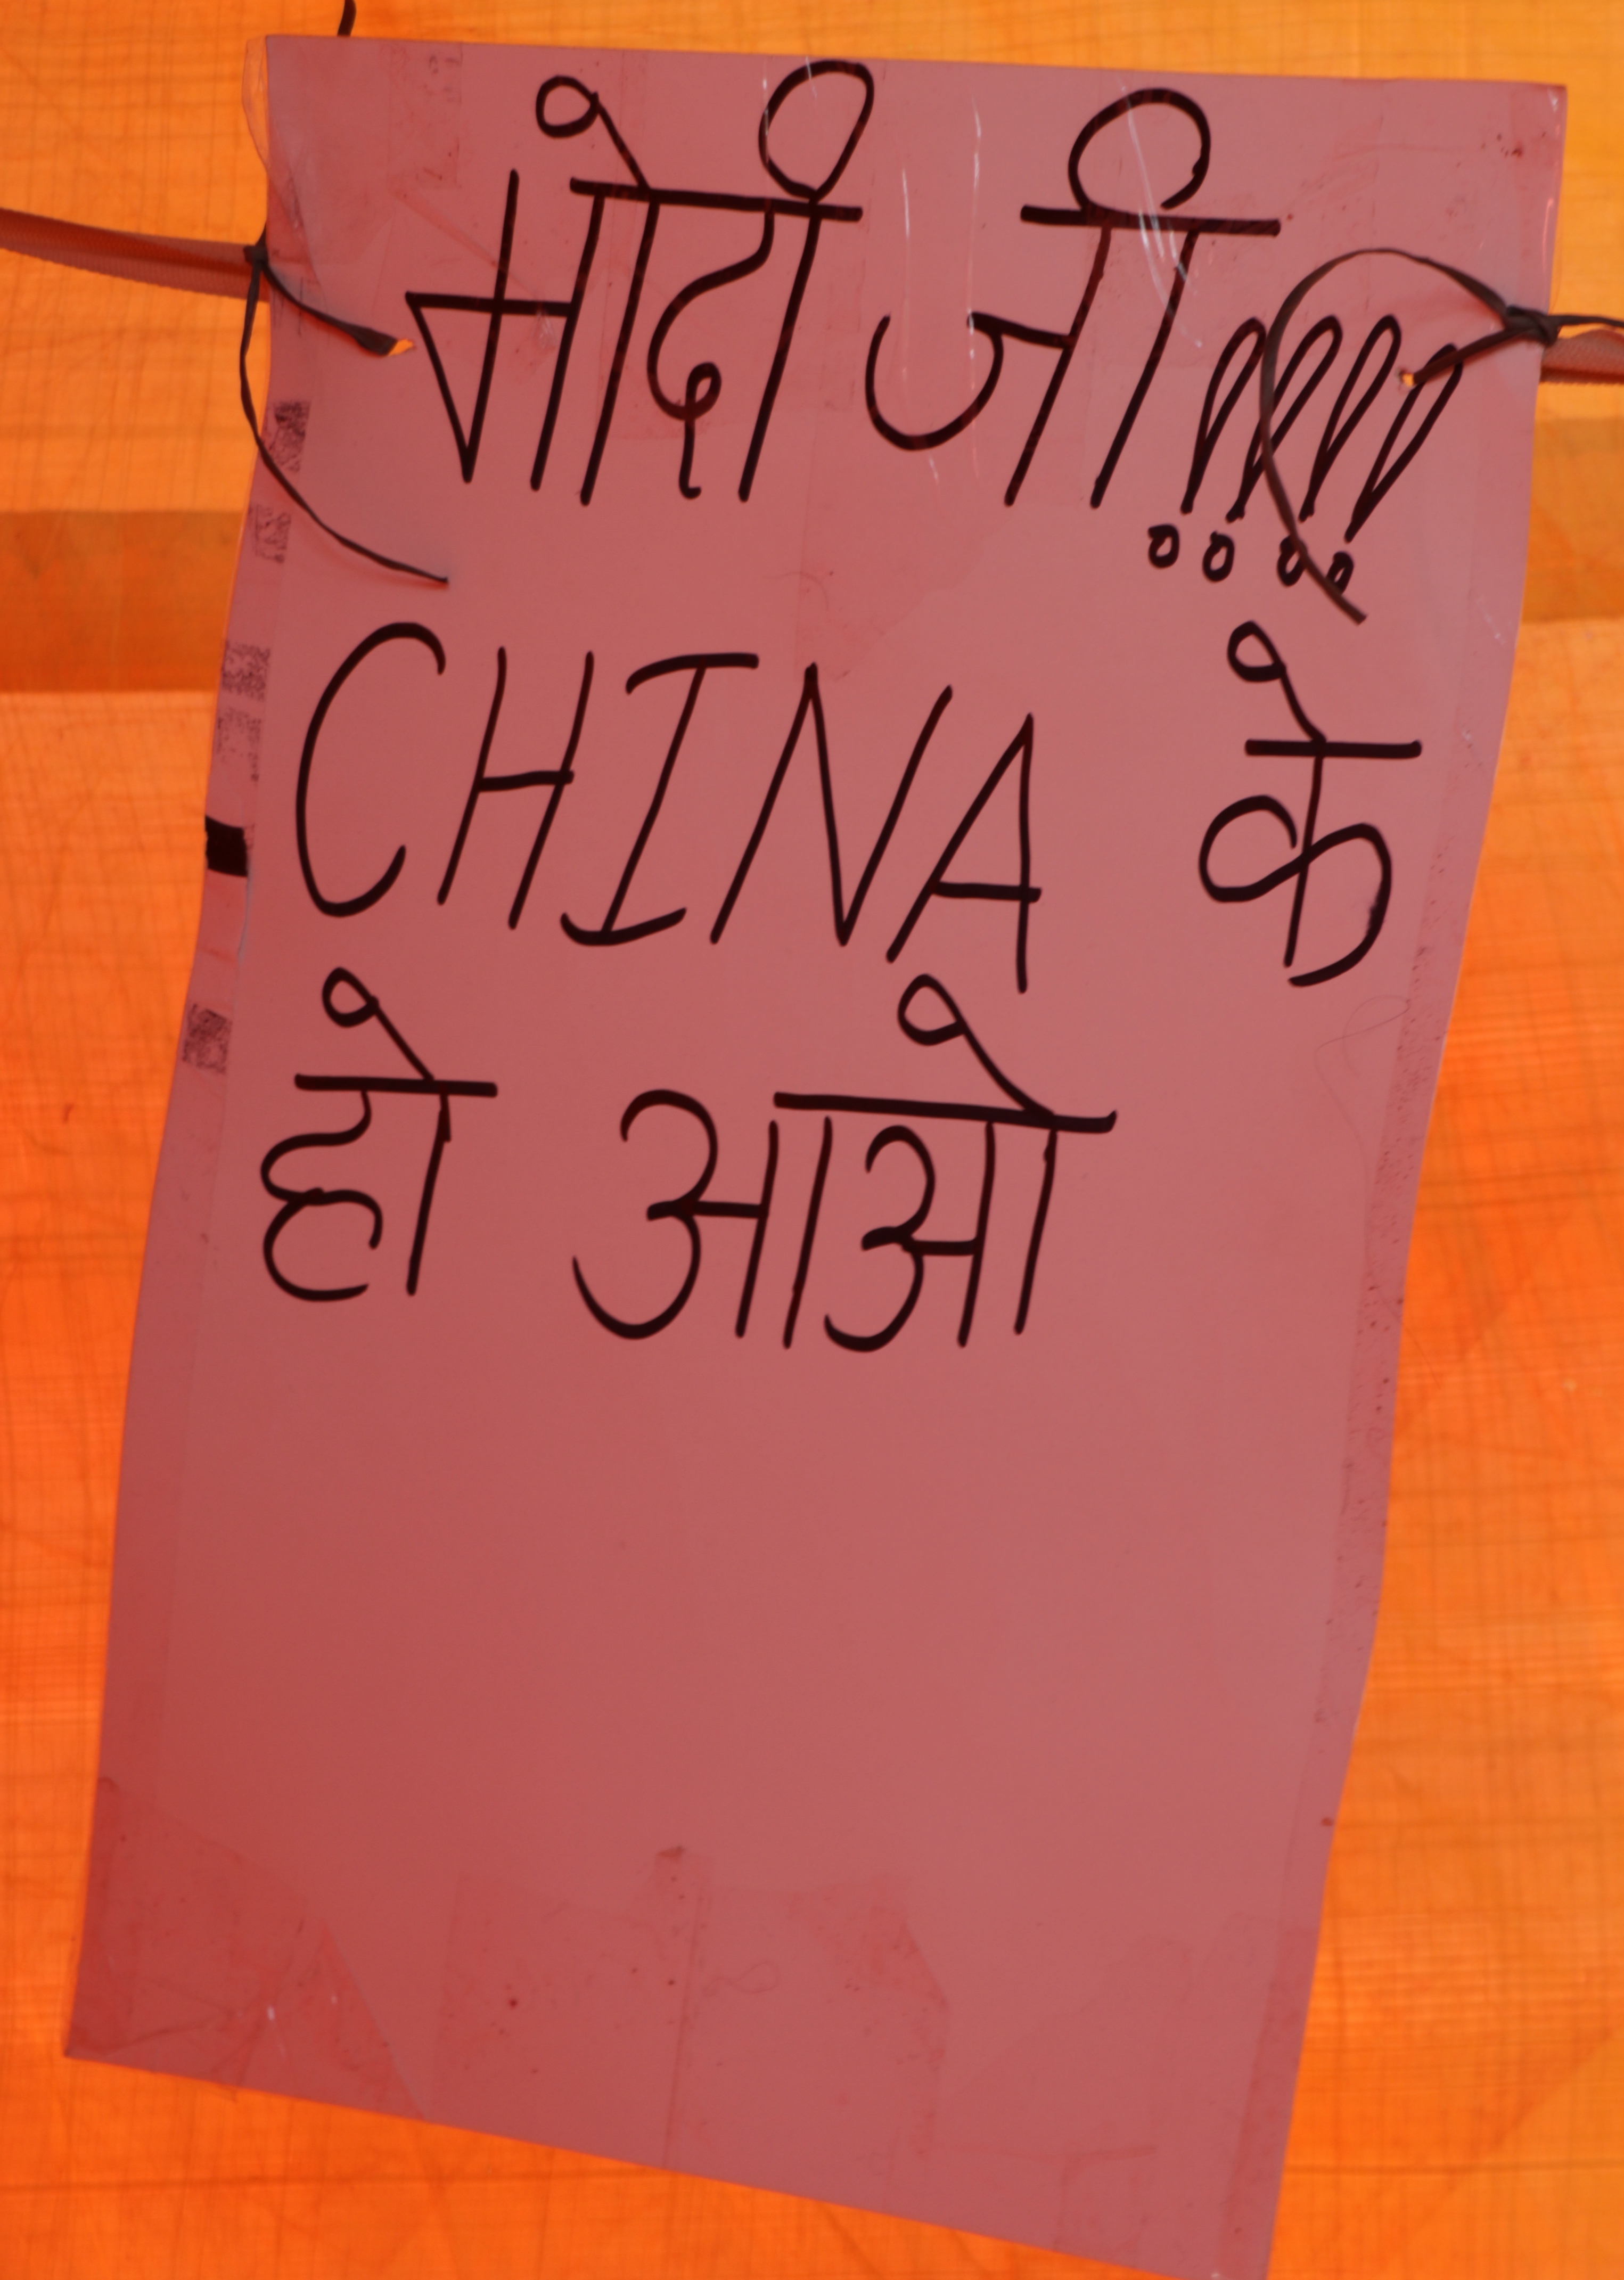 मोदी जी!!!!
CHINA के
हो आओ